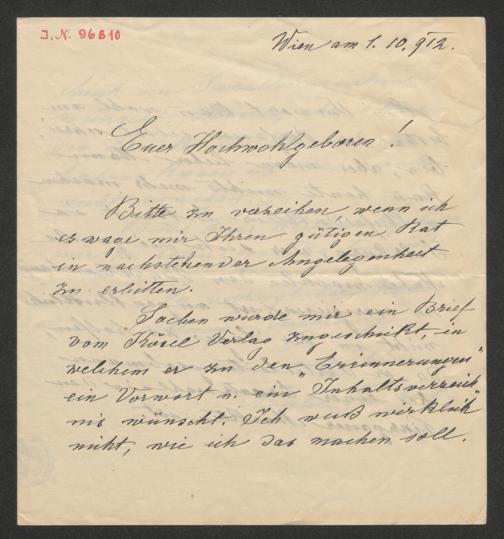 I. N. 96810
Wien am 1. 10. 912.
Euer Hochwohlgeboren!
Bitte zu verzeihen, wenn ich
es wage mir Ihren gütigen Rat
in nachstehender Angelegenheit
zu erbitten.
Soeben wurde mir ein Brief
vom Kösel Verlag zugeschickt, in
welchem er zu den "Erinnerungen"
ein Vorwort u. ein "Inhaltsverzeich
nis wünscht. Ich weiß wirklich
nicht, wie ich das machen soll.